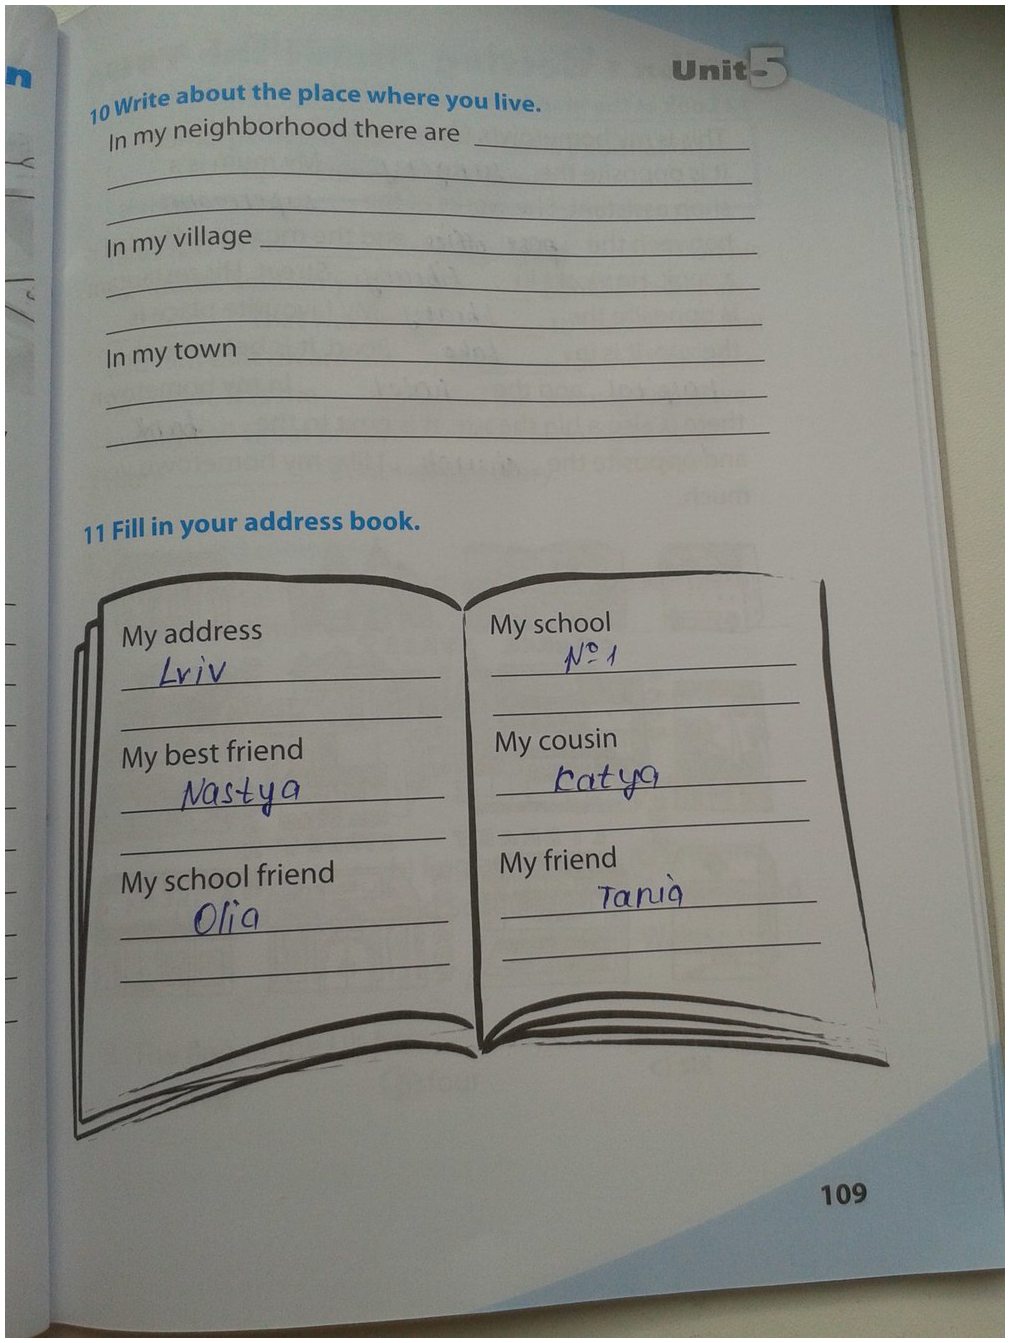 n
Unit 5
10 Write about the place where you live.
In my neighborhood there are
In my village
In my town
11 Fill in your address book.
My address
Lviv
My best friend
Nastya
My school friend
Olia
My school
№ 1
My cousin
Katya
My friend
Tania
109